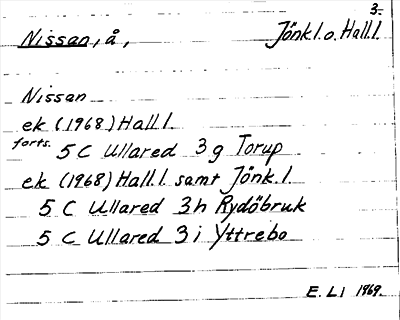 3.
Nissan, å, Jönk.l. o. Hall.l.
Nissan
ek (1968) Hall l.
forts. 5 C Ullared 3 g Torup
ek (1968) Hall.l. samt Jönk.l.
5 C Ullared 3h Rydöbruk
5 C Ullared 3i Yttrebo
E. Li 1969.